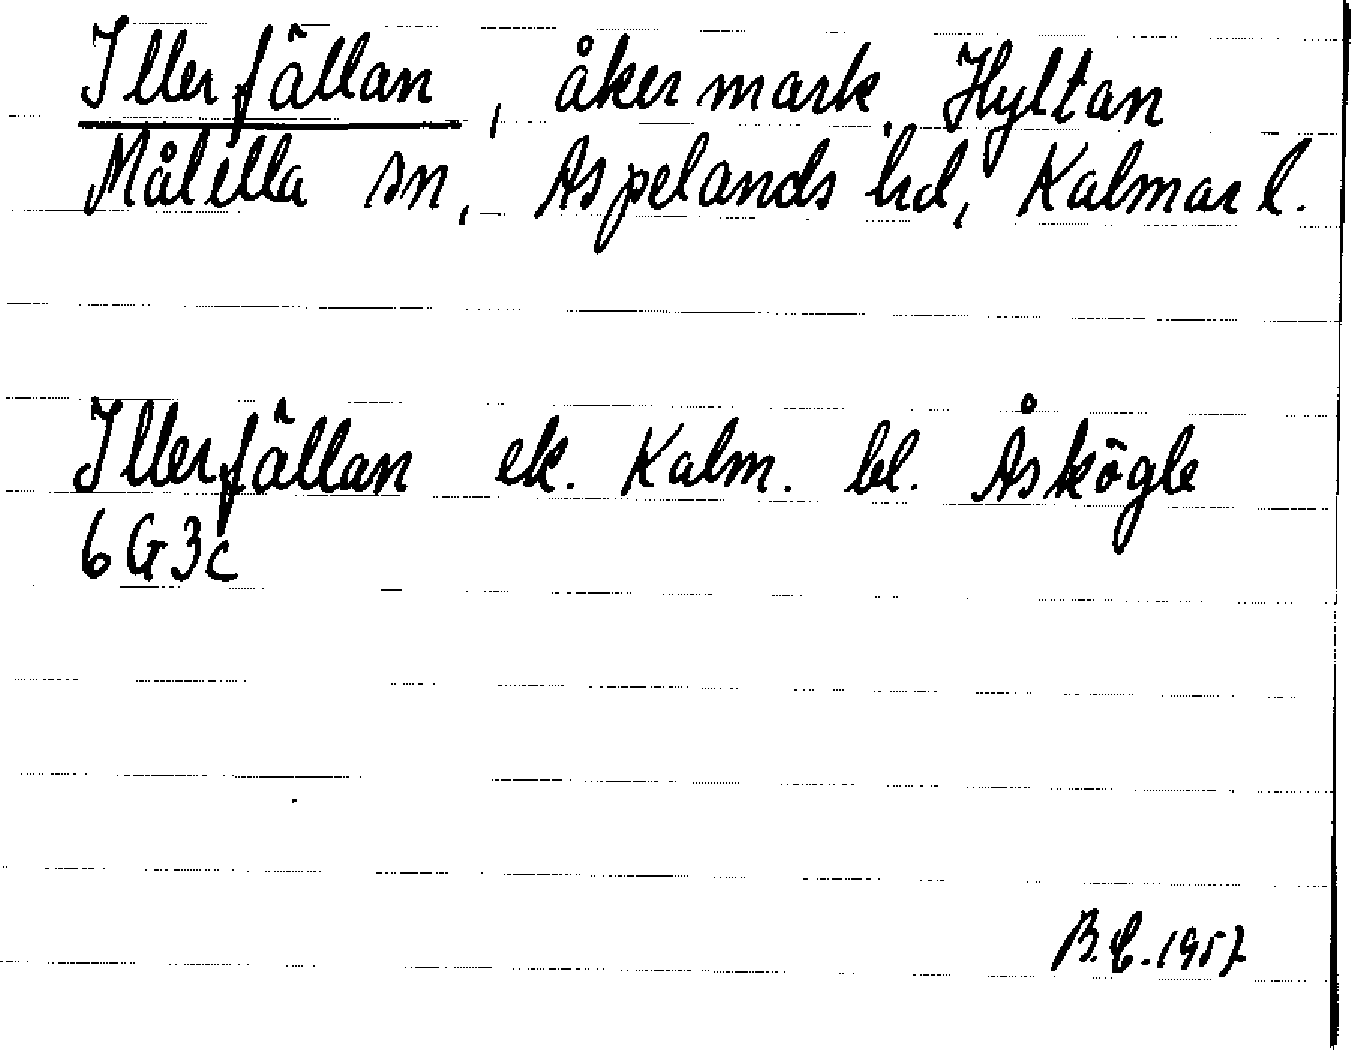 Illerfällan, åkermark, Hyltan
Målilla sn, Aspelands hd, Kalmar l.
Illerfällan ek. Kalm. bl. Åskögle
6G3c
B.E. 1957